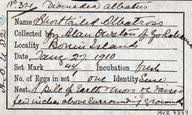 No. 321 Diomedea albatrus
Name Short tailed Albatross
Collected by Alan Owston
Locality Bonin Islands
Date Jan 27 1910
Set Mark Incubation fresh
No. of Eggs in set one Identity Sure
Nest A pile of Earth
few inches above surround'g ground